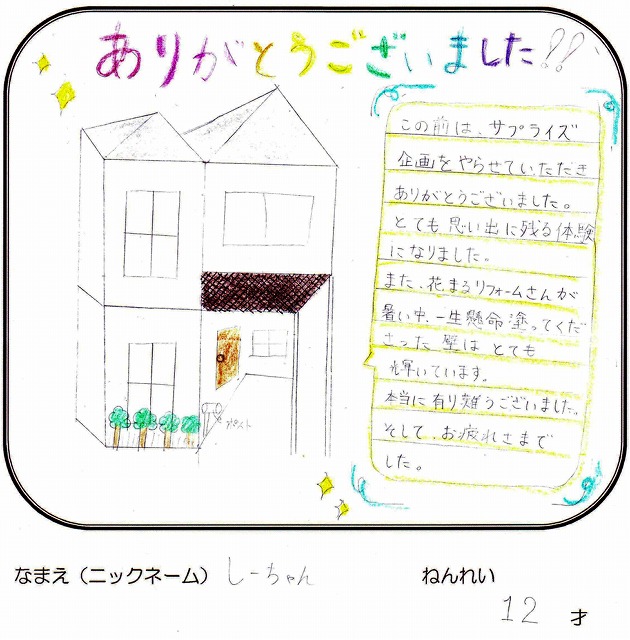 ありがとうございました!!
この前は、サプライズ
企画をやらせていただき
ありがとうございました。
とても思い出に残る体験
になりました。
また、花まるリフォームさんが
暑い中、一生懸命塗ってくだ
さった壁はとても
輝いています。
本当に有り難うございました。
そして、お疲れさまで
した。
ポスト
なまえ(ニックネーム) しーちゃん
ねんれい
12 才